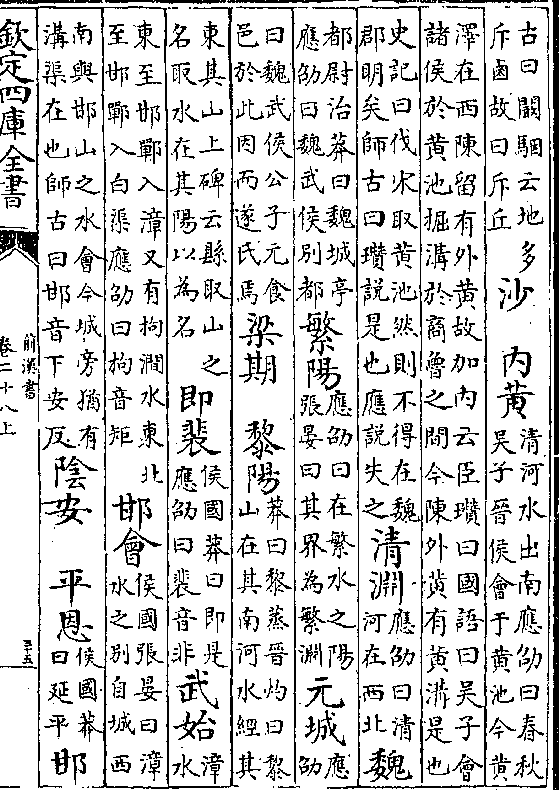 古曰闞駰云地多斥鹵故曰斥丘沙 内黄清河水出南應劭曰春秋吳子晉侯會于黄池今黄
澤在西陳留有外黄故加内云臣瓚曰國語曰吳子會諸侯於黄池掘溝於商魯之間今陳外黄有黄溝是也
史記曰伐宋取黄池然則不得在魏郡明矣師古曰瓚説是也應説失之清淵應劭曰清河在西北魏
都尉治莽曰魏城亭應劭曰魏武侯别都繁陽應劭曰在繁水之陽張晏曰其界為繁淵元城應劭
曰魏武侯公子元食邑於此因而遂氏焉梁期 黎陽莽曰黎蒸晉灼曰黎山在其南河水經其
東其山上碑云縣取山之名取水在其陽以為名即裴侯國莽曰即是應劭曰裴音非武始漳水
東至邯鄲入漳又有拘澗水東北至邯鄲入白渠應劭曰拘音矩邯會侯國張晏曰漳水之别自城西
南與邯山之水會今城旁猶有溝渠在也師古曰邯音下安反陰安 平恩侯國莽曰延平邯
欽定四庫全書
前漢書
卷二十八上
三十五